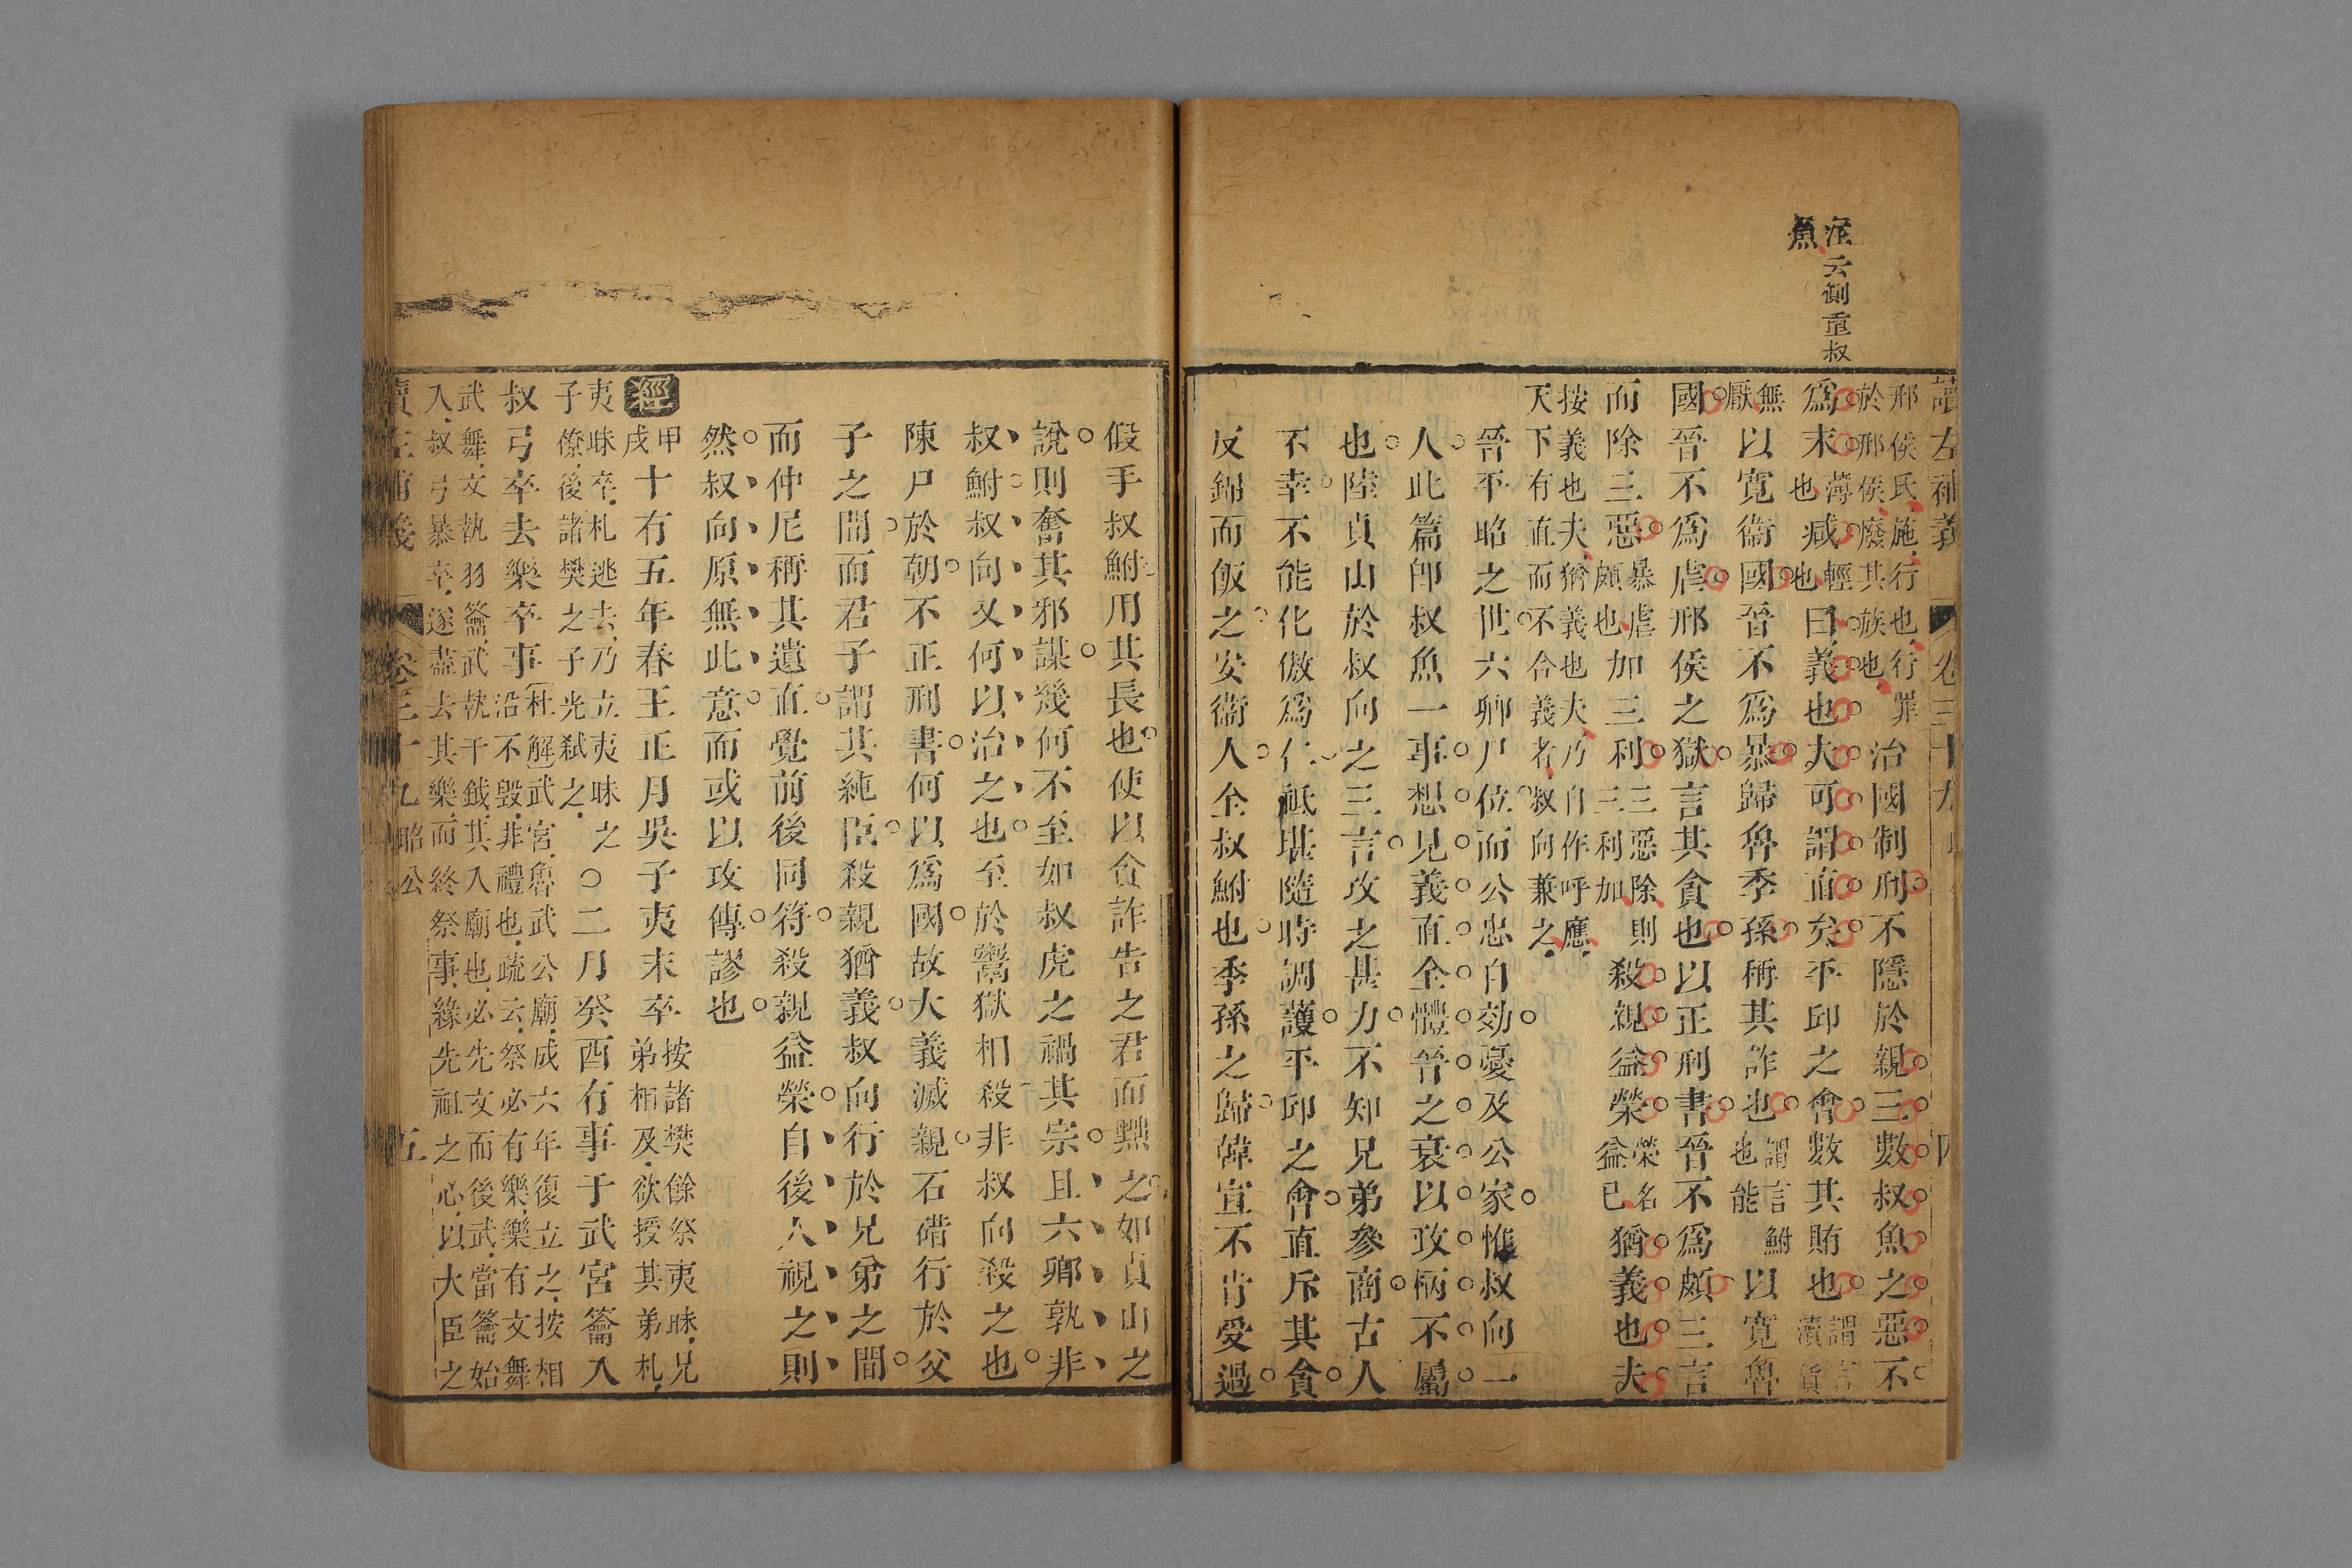 云側重叔
魚
讀左補義 卷三十九 四
邢侯氏施行也行罪
於邢侯廢其族也
治國制刑不隱於親三數叔魚之惡不
為末薄也減輕也曰義也大可謂直矣平邱之會數其賄也謂言瀆貨
無厭以寬衞國晉不為暴歸魯季孫稱其詐也謂言鮒也能以寬魯
國晉不為虐邢侯之獄言其貪也以正刑書晉不為頗三言
而除三惡暴虐頗也加三利三惡除則三利加殺親益榮榮名益已猶義也夫
按義也夫猶義也夫乃自作呼應
天下有直而不合義者叔向兼之
晉平昭之世六卿尸位而公忠自効憂及公家惟叔向一
人此篇卽叔魚一事想見義直全體晉之衰以政柄不屬
也陸貞山於叔向之三言攻之甚力不知兄弟參商古人
不幸不能化傲為仁祗堪隨時調護平邱之會直斥其貪
反錦而飯之安衞人全叔鮒也季孫之歸韓宣不肯受過
假手叔鮒用其長也使以貪詐告之君而黜之如貞山之
說則奮其邪謀幾何不至如叔虎之禍其宗且六卿孰非
叔鮒叔向又何以治之也至於鬻獄相殺非叔向殺之也
陳尸於朝不正刑書何以為國故大義滅親石碏行於父
子之間而君子謂其純臣殺親猶義叔向行於兄弟之間
而仲尼稱其遺直覺前後同符殺親益榮自後人視之則
然叔向原無此意而或以攻傳謬也
經甲戌十有五年春王正月吳子夷末卒按諸樊餘祭夷昧兄弟相及欲授其弟札
夷昧卒札逃去乃立夷昧之子僚後諸樊之子光弑之○二月癸酉有事于武宮籥入
叔弓卒去樂卒事杜解武宮魯武公廟成六年復立之按相沿不毀非禮也疏云祭必有樂樂有文舞
武舞文執羽籥武執干鏚其入廟也必先文而後武當籥始
入叔弓暴卒遂盡去其樂而終祭事緣先祖之心以大臣之
讀左補義 卷三十九 昭公 五